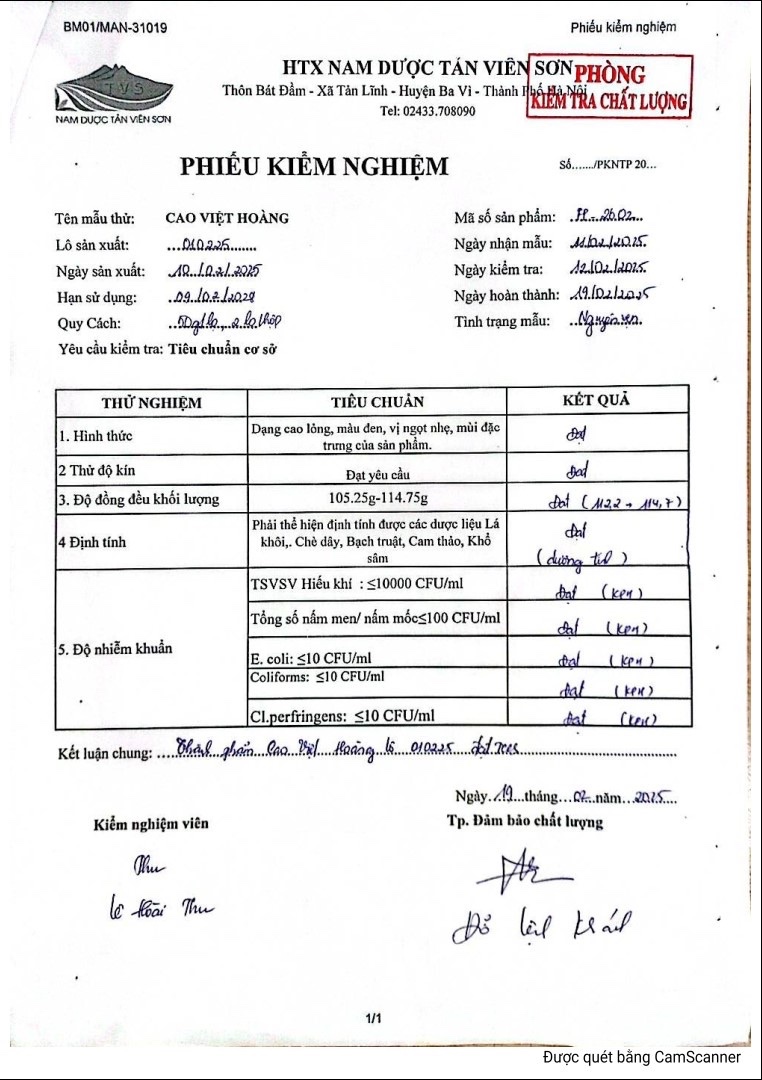 BM01/MAN-31019
Phiếu kiểm nghiệm
TVS
NAM DƯỢC TẢN VIÊN SƠN
HTX NAM DƯỢC TẢN VIÊN SƠN
Thôn Bát Đầm - Xã Tản Lĩnh - Huyện Ba Vì - Thành Phố Hà Nội
Tel: 02433.708090
PHÒNG
KIỂM TRA CHẤT LƯỢNG
PHIẾU KIỂM NGHIỆM
Số......./PKNTP 20...
Tên mẫu thử: CAO VIỆT HOÀNG
Mã số sản phẩm:
Lô sản xuất: ...010225.......
Ngày nhận mẫu: 11/02/2025
Ngày sản xuất: 10/02/2025
Ngày kiểm tra: 12/02/2025
Hạn sử dụng: 09/02/2028
Ngày hoàn thành: 19/02/2025
Quy Cách:
Tình trạng mẫu: Nguyên vẹn
Yêu cầu kiểm tra: Tiêu chuẩn cơ sở
THỬ NGHIỆM TIÊU CHUẨN KẾT QUẢ
1. Hình thức Dạng cao lỏng, màu đen, vị ngọt nhẹ, mùi đặc trưng của sản phẩm. Đạt
2 Thử độ kín Đạt yêu cầu Đạt
3. Độ đồng đều khối lượng 105.25g-114.75g Đạt (112,2 → 114,7)
4 Định tính Phải thể hiện định tính được các dược liệu Lá khôi,. Chè dây, Bạch truật, Cam thảo, Khổ sâm Đạt (dương tính)
5. Độ nhiễm khuẩn
TSVSV Hiếu khí : ≤10000 CFU/ml Đạt (KPH)
Tổng số nấm men/ nấm mốc≤100 CFU/ml Đạt (KPH)
E. coli: ≤10 CFU/ml Đạt (KPH)
Coliforms: ≤10 CFU/ml Đạt (KPH)
Cl.perfringens: ≤10 CFU/ml Đạt (KPH)
Kết luận chung: Thành phẩm Cao Việt Hoàng lô 010225 đạt TCCS
Ngày 19 tháng 02 năm 2025
Kiểm nghiệm viên
Tp. Đảm bảo chất lượng
Thu
Lê Hoài Thu
Đỗ
1/1
Được quét bằng CamScanner